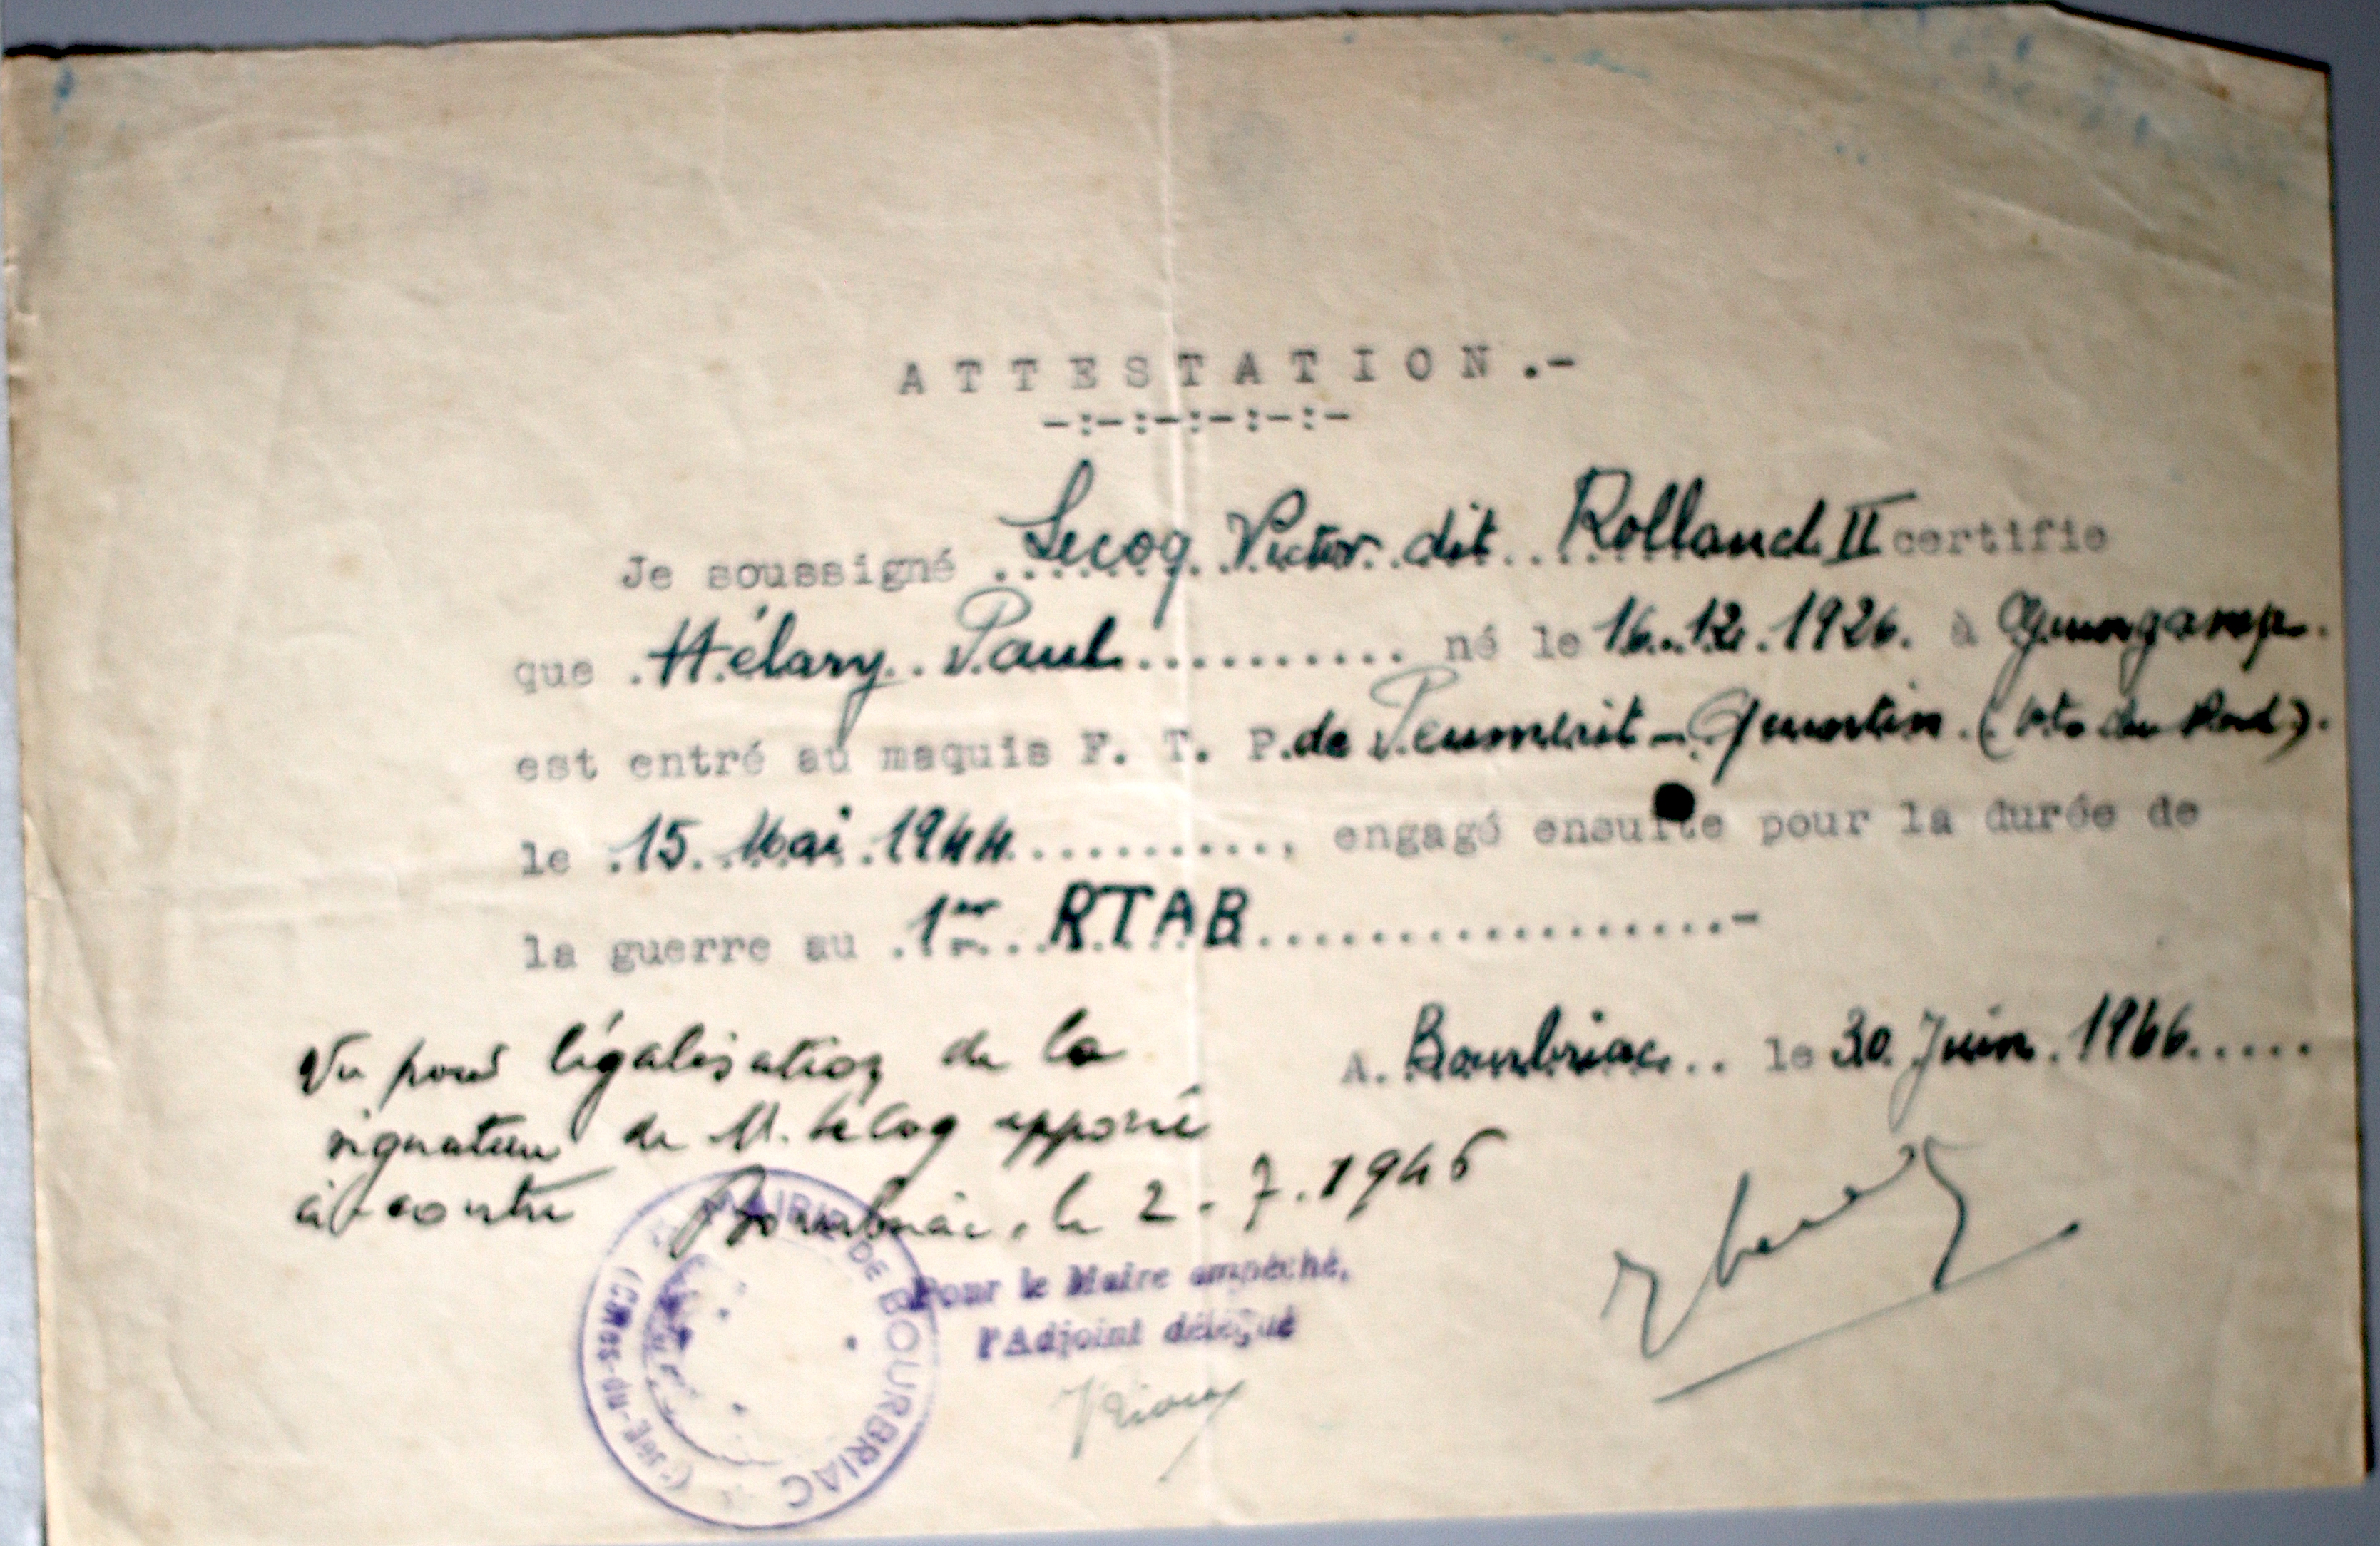 ATTESTATION.-
-:-:-:-:-:-
Je soussigné Lecoq Victor dit Rolland II certifie
que Hélary Paul né le 16.12.1926. à Guingamp.
est entré au maquis F. T. P. de Peumerit-Quintin (Cts du Nord).
le 15 Mai 1944, engagé ensuite pour la durée de
la guerre au 1er RTAB.-
A. Bourbriac le 30 Juin 1946
Vu pour légalisation de la
signature de M. Le Coq apposé
ci-contre Bourbriac, le 2-7-1946
Pour le Maire empêché,
l'Adjoint délégué
MAIRIE DE BOURBRIAC
(Côtes-du-Nord)